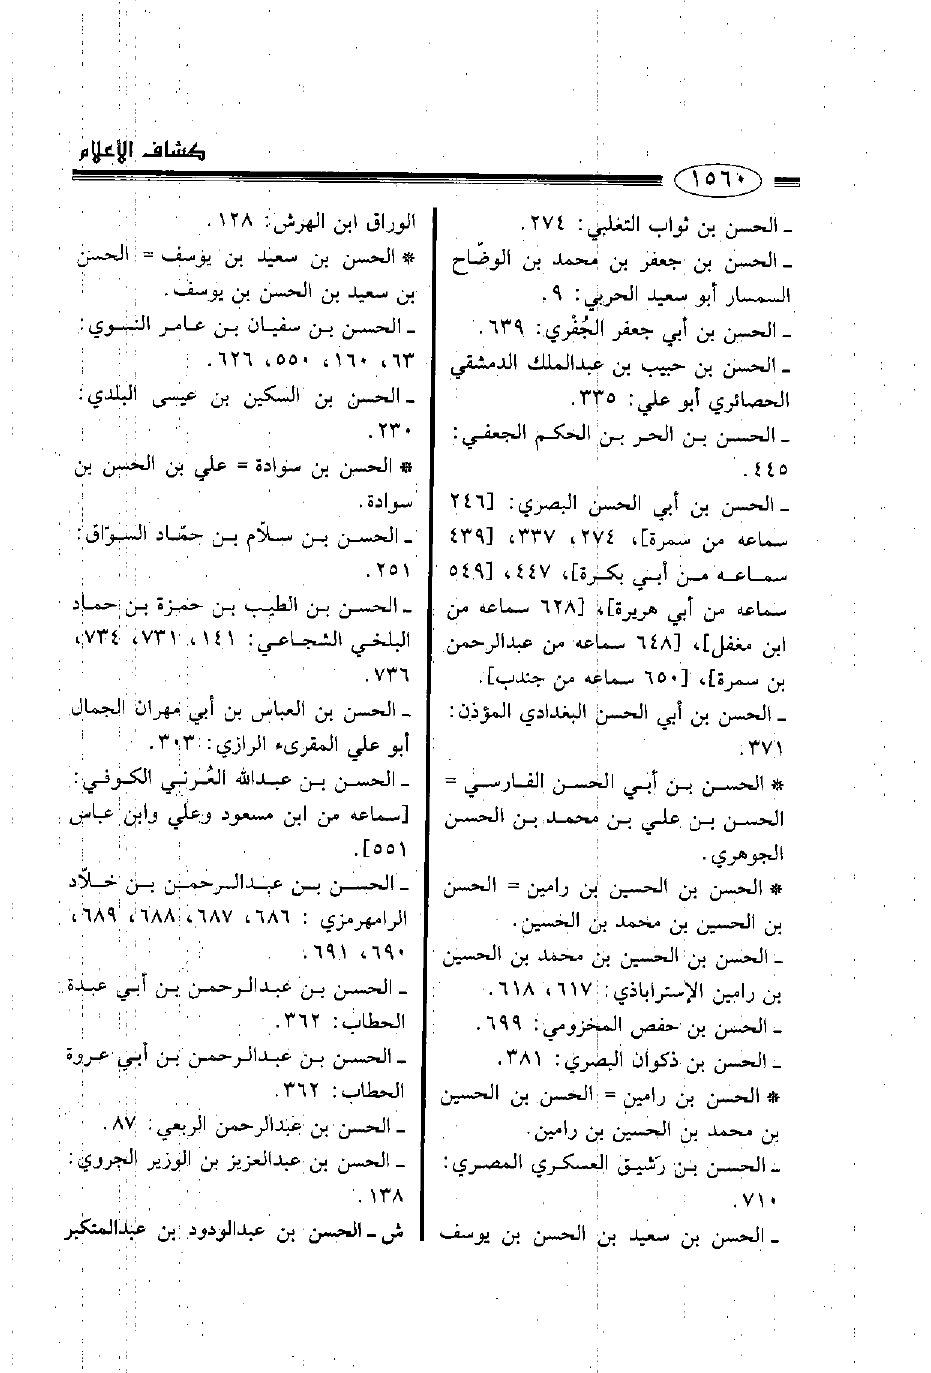 كشاف الأعلام
١٥٦٠
ـ الحسن بن ثواب التغلبي: ٢٧٤.
ـ الحسن بن جعفر بن محمد بن الوضّاح
السمسار أبو سعيد الحربي: ٩.
ـ الحسن بن أبي جعفر الجُفْري: ٦٣٩.
ـ الحسن بن حبيب بن عبدالملك الدمشقي
الحصائري أبو علي: ٣٣٥.
ـ الحسن بن الحر بن الحكم الجعفي:
٤٤٥.
ـ الحسن بن أبي الحسن البصري: [٢٤٦
سماعه من سمرة]، ٢٧٤، ٣٣٧، [٤٣٩
سماعه من أبي بكرة]، ٤٤٧، [٥٤٩
سماعه من أبي هريرة]، [٦٢٨ سماعه من
ابن مغفل]، [٦٤٨ سماعه من عبدالرحمن
بن سمرة]، [٦٥٠ سماعه من جندب].
ـ الحسن بن أبي الحسن البغدادي المؤذن:
٣٧١.
* الحسن بن أبي الحسن الفارسي =
الحسن بن علي بن محمد بن الحسن
الجوهري.
* الحسن بن الحسين بن رامين = الحسن
بن الحسين بن محمد بن الحسين.
ـ الحسن بن الحسين بن محمد بن الحسين
بن رامين الإستراباذي: ٦١٧، ٦١٨.
ـ الحسن بن حفص المخزومي: ٦٩٩.
ـ الحسن بن ذكوان البصري: ٣٨١.
* الحسن بن رامين = الحسن بن الحسين
بن محمد بن الحسين بن رامين.
ـ الحسن بن رشيق العسكري المصري:
٧١٠.
ـ الحسن بن سعيد بن الحسن بن يوسف
الوراق ابن الهرش: ١٢٨.
* الحسن بن سعيد بن يوسف = الحسن
بن سعيد بن الحسن بن يوسف.
ـ الحسن بن سفيان بن عامر النسوي:
٦٣، ١٦٠، ٥٥٠، ٦٢٦.
ـ الحسن بن السكين بن عيسى البلدي:
٢٣٠.
* الحسن بن سوادة = علي بن الحسن بن
سوادة.
ـ الحسن بن سلاّم بن حمّاد السوّاق:
٢٥١.
ـ الحسن بن الطيب بن حمزة بن حماد
البلخي الشجاعي: ١٤١، ٧٣١، ٧٣٤،
٧٣٦.
ـ الحسن بن العباس بن أبي مهران الجمال
أبو علي المقرىء الرازي: ٣٠٣.
ـ الحسن بن عبدالله العُرني الكوفي:
[سماعه من ابن مسعود وعلي وابن عباس
٥٥١].
ـ الحسن بن عبدالرحمن بن خلاّد
الرامهرمزي : ٦٨٦، ٦٨٧، ٦٨٨، ٦٨٩،
٦٩٠، ٦٩١.
ـ الحسن بن عبدالرحمن بن أبي عبدة
الحطاب: ٣٦٢.
ـ الحسن بن عبدالرحمن بن أبي عروة
الحطاب: ٣٦٢.
ـ الحسن بن عبدالرحمن الربعي: ٨٧.
ـ الحسن بن عبدالعزيز بن الوزير الجروي:
١٣٨.
ش ـ الحسن بن عبدالودود بن عبدالمتكبر